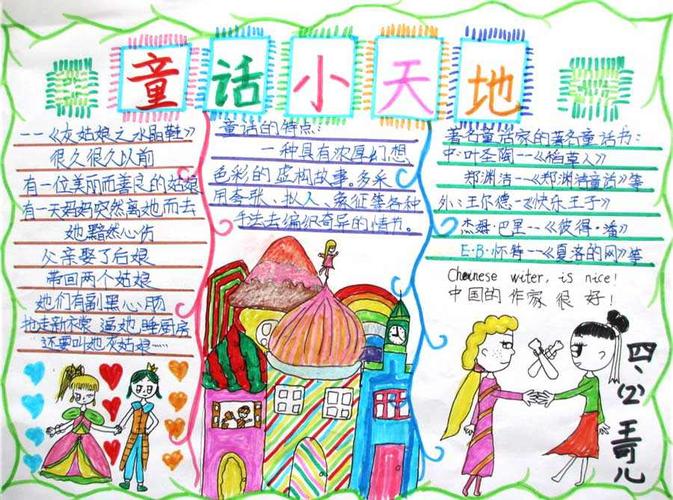 童话小天地
--《灰姑娘之水晶鞋》
很久很久以前
有一位美丽而善良的姑娘
有一天妈妈突然离她而去
她黯然心伤
父亲娶了后娘
带回两个姑娘
她们有副黑心肠
抢走新衣裳逼她睡厨房
还要叫她灰姑娘……
童话的特点:
一种具有浓厚幻想
色彩的虚构故事。多采
用夸张、拟人、象征等各种
手法去编织奇异的情节。
著名童话家的著名童话书:
中:叶圣陶--《稻草人》
郑渊洁--《郑渊洁童话》等
外:王尔德--《快乐王子》
杰姆·巴里--《彼得·潘》
E·B·怀特--《夏洛的网》等
Cheinese witer, is nice!
中国的作家很好!
四、(2) 王可儿